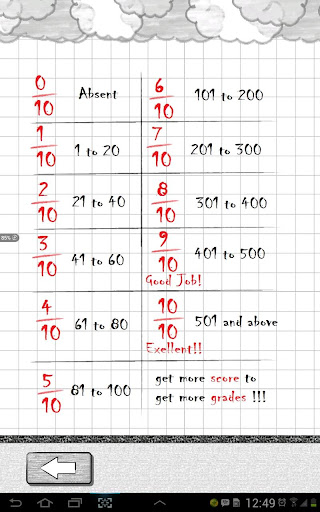 0/10 Absent
1/10 1 to 20
2/10 21 to 40
3/10 41 to 60
4/10 61 to 80
5/10 81 to 100
6/10 101 to 200
7/10 201 to 300
8/10 301 to 400
9/10 401 to 500
Good Job!
10/10 501 and above
Exellent!!
get more score to
get more grades !!!
85%
12:49